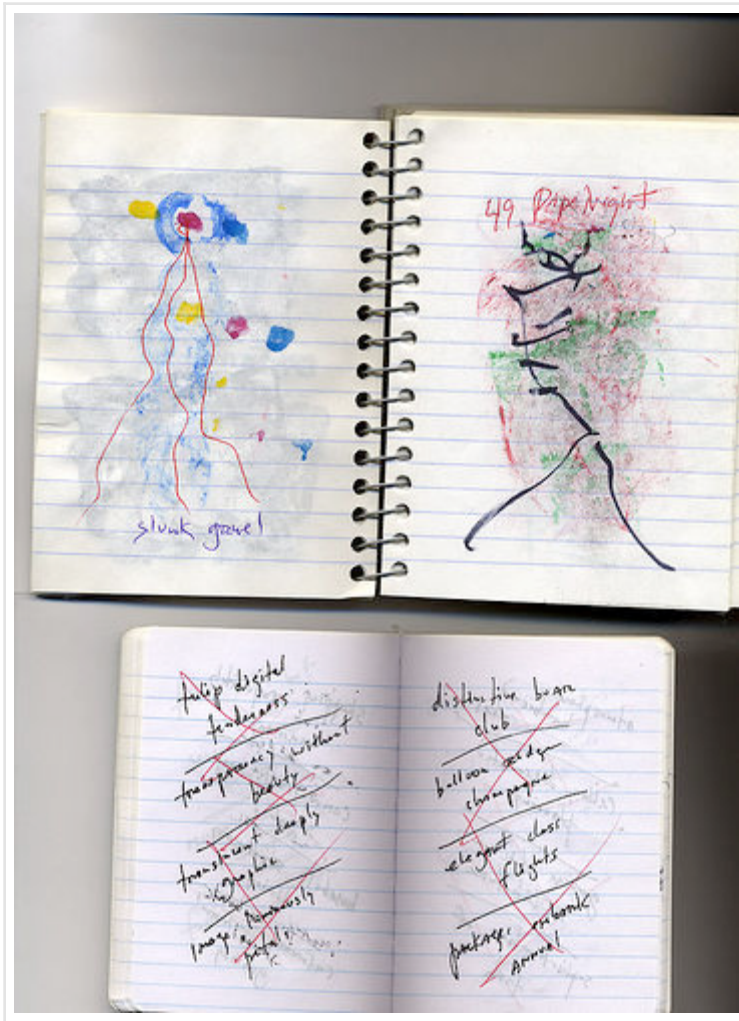 49
slunk gravel
tulip digital
tenderness
transparency without
beauty
translucent deeply
graphic
image luminously
petals
distinctive
club
balloon
champagne
elegant class
flights
package.
annual